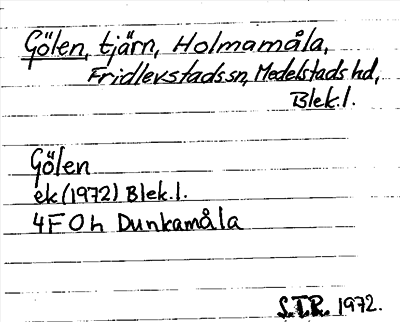 Gölen, tjärn, Holmamåla,
Fridlevstads sn, Medelstads hd,
Blek.l.
Gölen
ek (1972) Blek.l.
4F 0h Dunkamåla
S.T.R. 1972.